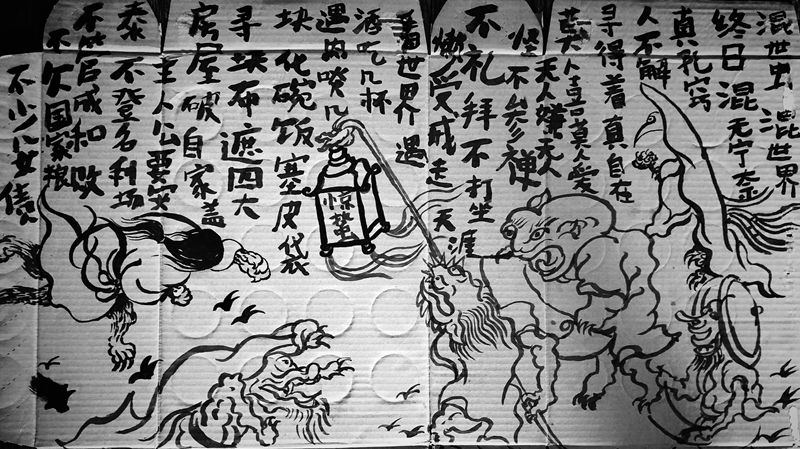 混世虫 混世界
终日混 无宁奈
真孔窍
人不解
寻得着真自在
莫人喜莫人爱
无人嫌无人
怪不参禅
不礼拜不打坐
懒受戒走天涯
看世界 遇
酒吃几杯
遇肉喫几
块化碗饭塞皮袋
寻块布遮四大
房屋破自家盖
主人公要安
泰不登名利场
不管成和败
不欠国家粮
不少债
惊蛰